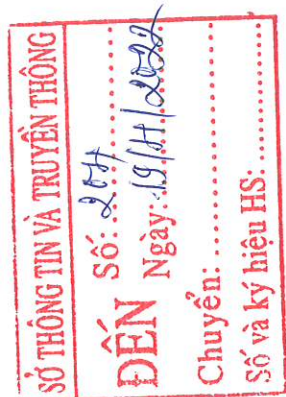 SỞ THÔNG TIN VÀ TRUYỀN THÔNG
ĐẾN Số: 204
Ngày: 19/4/2022
Chuyển:
Số và ký hiệu HS: